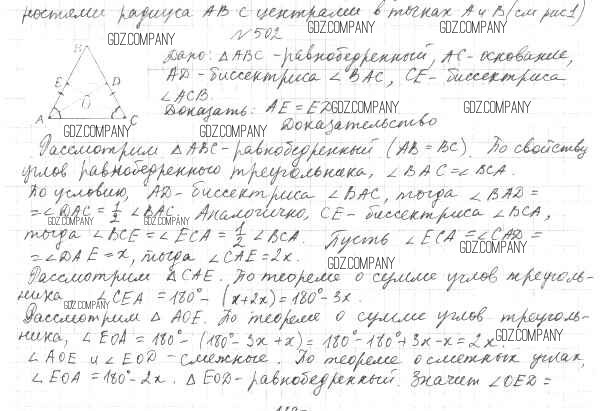 ностями радиуса AB с центрами в точках A и B (см рис 1)
GDZ.COMPANY GDZ.COMPANY GDZ.COMPANY
№ 502
Дано: △ABC - равнобедренный, AC - основание,
AD - биссектриса ∠BAC, CE - биссектриса
∠ACB.
Доказать: AE = ED
GDZ.COMPANY GDZ.COMPANY
B E D O A C
GDZ.COMPANY GDZ.COMPANY
Доказательство
Рассмотрим △ABC - равнобедренный (AB = BC). По свойству
углов равнобедренного треугольника, ∠BAC = ∠BCA.
По условию, AD - биссектриса ∠BAC, тогда ∠BAD =
= ∠DAC = 1/2 ∠BAC. Аналогично, CE - биссектриса ∠BCA,
GDZ.COMPANY GDZ.COMPANY
тогда ∠BCE = ∠ECA = 1/2 ∠BCA. Пусть ∠ECA = ∠CAD =
GDZ.COMPANY
= ∠DAE = x, тогда ∠CAE = 2x.
GDZ.COMPANY
Рассмотрим △CAE. По теореме о сумме углов треуголь-
ника ∠CEA = 180° - (x + 2x) = 180° - 3x.
GDZ.COMPANY
Рассмотрим △AOE. По теореме о сумме углов треуголь-
ника, ∠EOA = 180° - (180° - 3x + x) = 180° - 180° + 3x - x = 2x.
GDZ.COMPANY
∠AOE и ∠EOD - смежные. По теореме о смежных углах,
∠EOA = 180° - 2x. △EOD - равнобедренный. Значит ∠OED =
GDZ.COMPANY